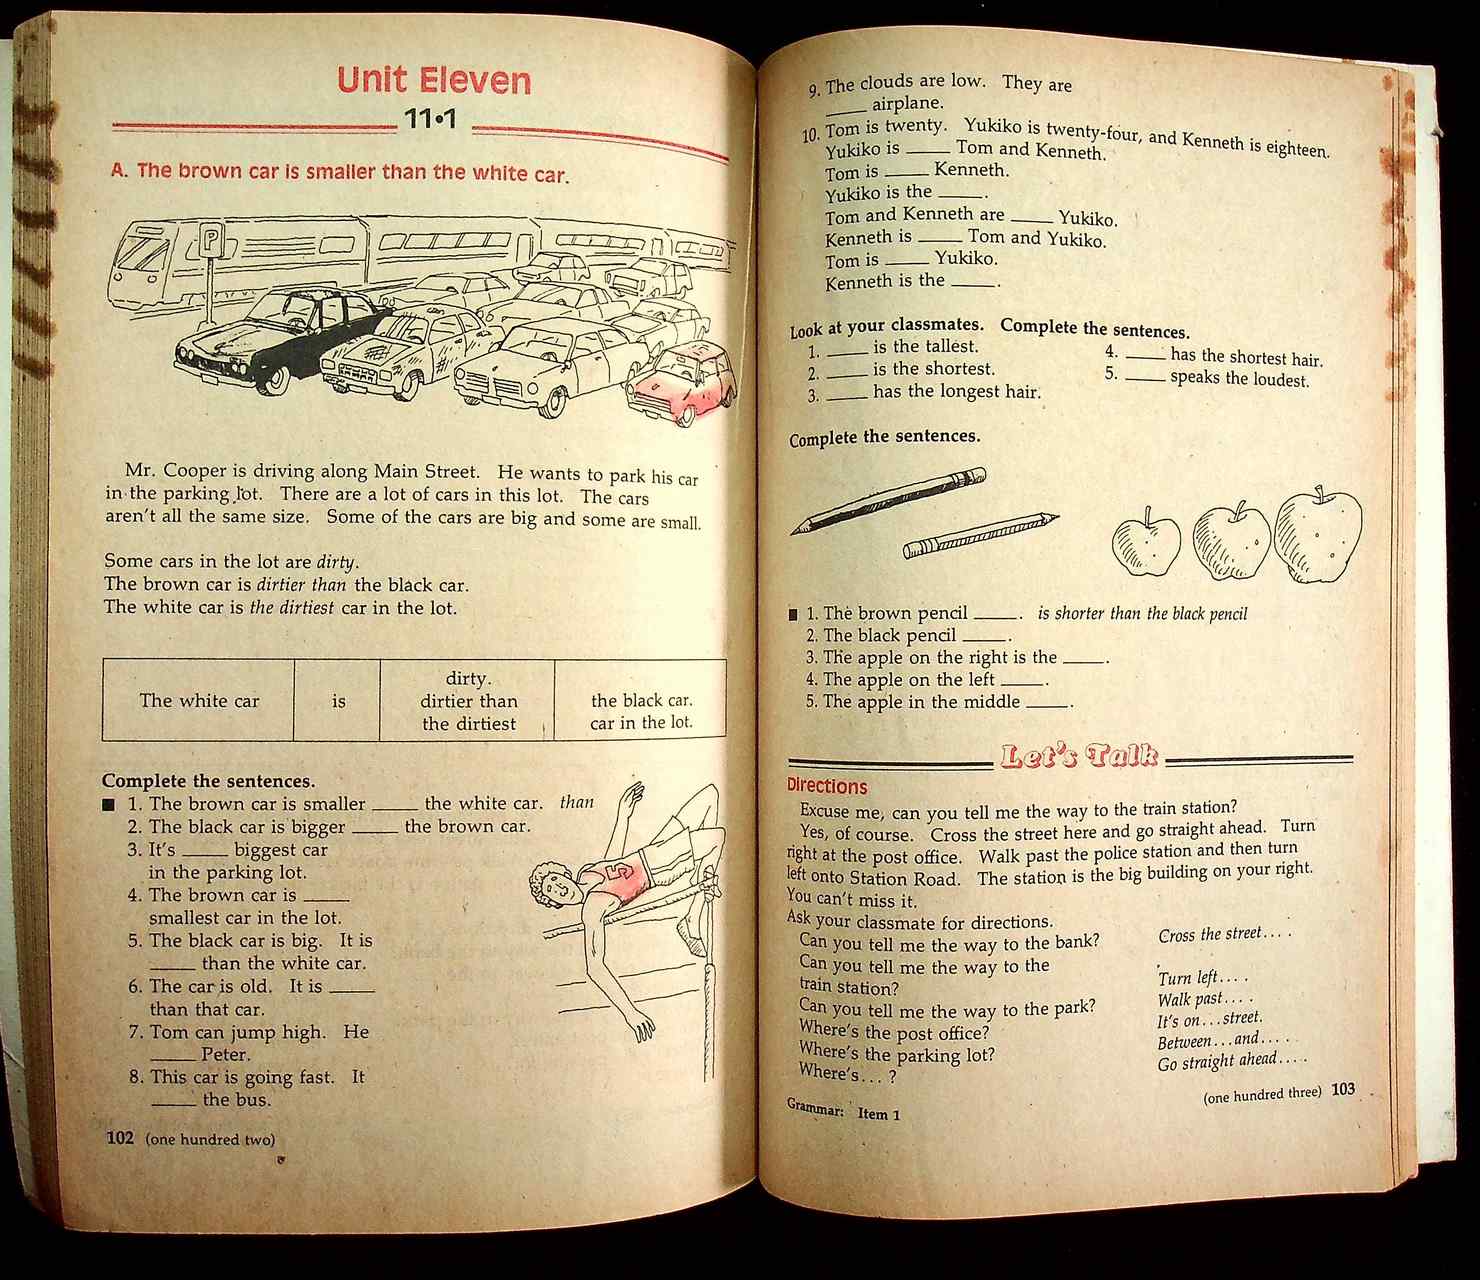 Unit Eleven
11•1
A. The brown car is smaller than the white car.
P
Mr. Cooper is driving along Main Street. He wants to park his car
in the parking lot. There are a lot of cars in this lot. The cars
aren't all the same size. Some of the cars are big and some are small.
Some cars in the lot are dirty.
The brown car is dirtier than the black car.
The white car is the dirtiest car in the lot.
dirty.
The white car is dirtier than the black car.
the dirtiest car in the lot.
Complete the sentences.
■ 1. The brown car is smaller ____ the white car. than
2. The black car is bigger ____ the brown car.
3. It's ____ biggest car
in the parking lot.
4. The brown car is ____
smallest car in the lot.
5. The black car is big. It is
____ than the white car.
6. The car is old. It is ____
than that car.
7. Tom can jump high. He
____ Peter.
8. This car is going fast. It
____ the bus.
5
102 (one hundred two)
9. The clouds are low. They are
____ airplane.
10. Tom is twenty. Yukiko is twenty-four, and Kenneth is eighteen.
Yukiko is ____ Tom and Kenneth.
Tom is ____ Kenneth.
Yukiko is the ____.
Tom and Kenneth are ____ Yukiko.
Kenneth is ____ Tom and Yukiko.
Tom is ____ Yukiko.
Kenneth is the ____.
Look at your classmates. Complete the sentences.
1. ____ is the tallest.
2. ____ is the shortest.
3. ____ has the longest hair.
4. ____ has the shortest hair.
5. ____ speaks the loudest.
Complete the sentences.
■ 1. The brown pencil ____. is shorter than the black pencil
2. The black pencil ____.
3. The apple on the right is the ____.
4. The apple on the left ____.
5. The apple in the middle ____.
Let's Talk
Directions
Excuse me, can you tell me the way to the train station?
Yes, of course. Cross the street here and go straight ahead. Turn
right at the post office. Walk past the police station and then turn
left onto Station Road. The station is the big building on your right.
You can't miss it.
Ask your classmate for directions.
Can you tell me the way to the bank?
Can you tell me the way to the
train station?
Can you tell me the way to the park?
Where's the post office?
Where's the parking lot?
Where's... ?
Cross the street....
Turn left....
Walk past....
It's on...street.
Between...and....
Go straight ahead....
Grammar: Item 1
(one hundred three) 103